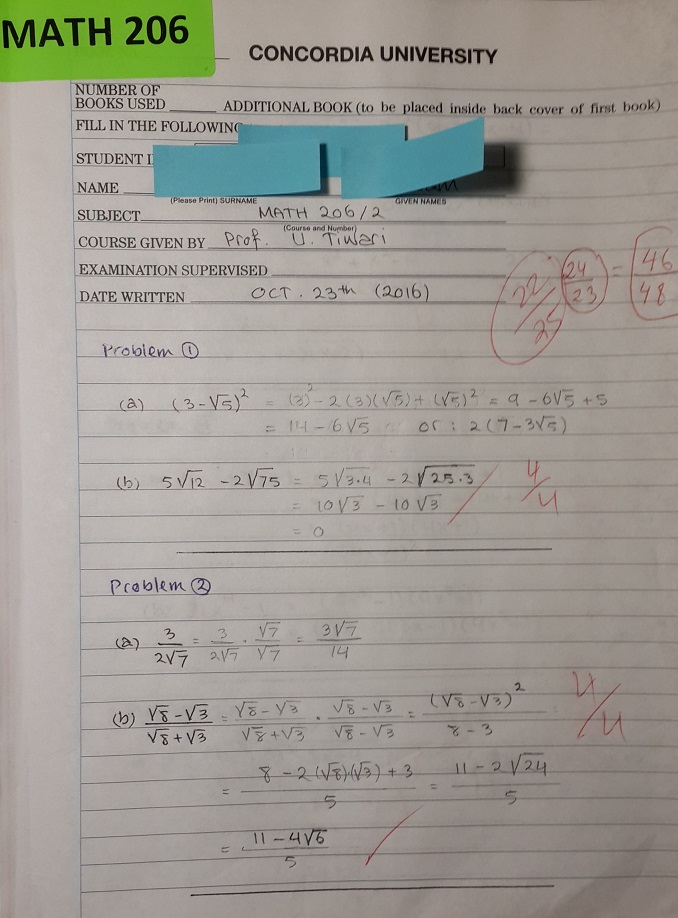 MATH 206
CONCORDIA UNIVERSITY
NUMBER OF
BOOKS USED ______ ADDITIONAL BOOK (to be placed inside back cover of first book)
FILL IN THE FOLLOWING
STUDENT I
NAME
(Please Print) SURNAME GIVEN NAMES
SUBJECT MATH 206/2
(Course and Number)
COURSE GIVEN BY Prof. U. Tiwari
EXAMINATION SUPERVISED
DATE WRITTEN OCT. 23th (2016)
22/25 24/23 = 46/48
Problem ①
(a) (3-√5)² = (3)² - 2(3)(√5) + (√5)² = 9 - 6√5 + 5
= 14 - 6√5 or: 2(7-3√5)
(b) 5√12 - 2√75 = 5√3.4 - 2√25.3 4/4
= 10√3 - 10√3
= 0
Problem ②
(a) 3/2√7 = 3/2√7 · √7/√7 = 3√7/14
(b) √8-√3/√8+√3 = √8-√3/√8+√3 · √8-√3/√8-√3 = (√8-√3)²/8-3 4/4
= 8-2(√8)(√3)+3/5 = 11-2√24/5
= 11-4√6/5